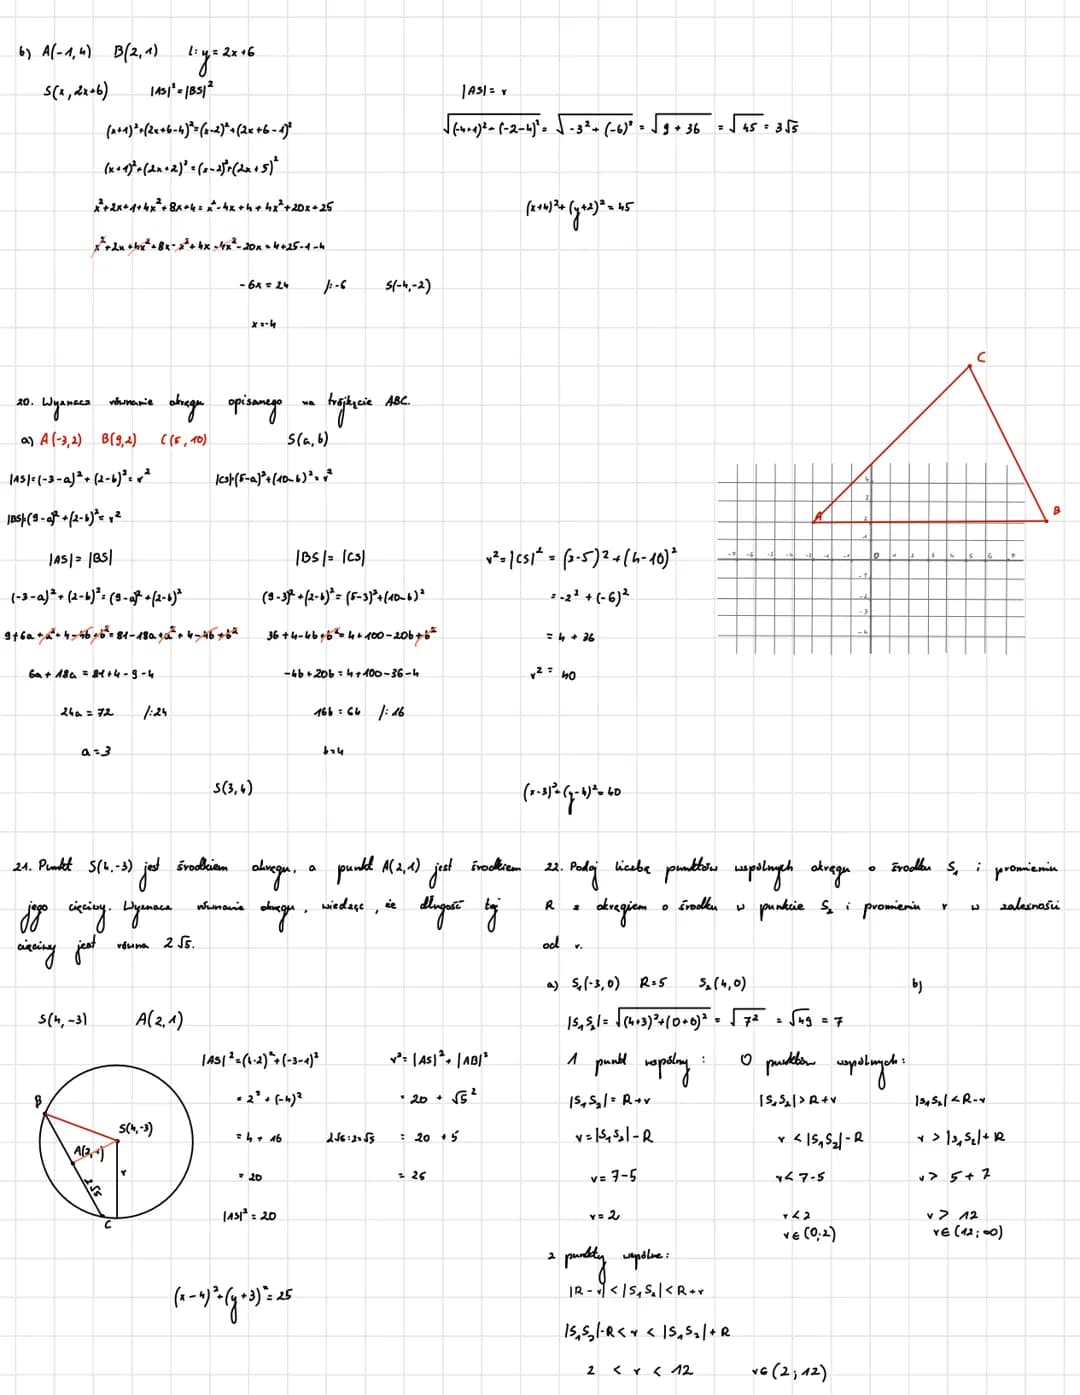 b) A(-1,4) B(2,1) l: y = 2x+6
S(x, 2x+6) |AS|² = |BS|²
(x+1)²+(2x+6-4)²=(x-2)²+(2x+6-1)²
(x+1)²+(2x+2)²=(x-2)²+(2x+5)²
x²+2x+1+4x²+8x+4 = x²-4x+4+4x²+20x+25
x²+2x+4x²+8x-x²+4x-4x²-20x=4+25-1-4
-6x = 24 /:-6 S(-4,-2)
x=-4
|AS| = r
√(-4+1)²+(-2-4)² = √-3²+(-6)² = √9+36 = √45 = 3√5
(x+4)²+(y+2)² = 45
20. Wyznacz równanie okręgu opisanego na trójkącie ABC.
a) A(-3,2) B(9,2) C(5,10) S(a,b)
|AS|=(-3-a)²+(2-b)²=r² |CS|=(5-a)²+(10-b)²=r²
|BS|=(9-a)²+(2-b)²=r²
|AS|=|BS|
(-3-a)²+(2-b)²=(9-a)²+(2-b)²
9+6a+a²+4-4b+b²=81-18a+a²+4-4b+b²
6a+18a = 81+4-9-4
24a = 72 /:24
a=3
|BS|=|CS|
(9-3)²+(2-b)²=(5-3)²+(10-b)²
36+4-4b+b²=4+100-20b+b²
-4b+20b=4+100-36-4
16b=64 /:16
b=4
S(3,4)
r²=|CS|²=(3-5)²+(4-10)²
=-2²+(-6)²
=4+36
r²=40
(x-3)²+(y-4)²=40
C
A
B
21. Punkt S(4,-3) jest środkiem okręgu, a punkt A(2,1) jest środkiem
jego cięciwy. Wyznacz równanie okręgu, wiedząc, że długość tej
cięciwy jest równa 2√5.
S(4,-3) A(2,1)
|AS|²=(4-2)²+(-3-1)²
=2²+(-4)²
=4+16
=20
|AS|²=20
2√5:2=√5
r²=|AS|²+|AB|²
=20+√5²
=20+5
=25
B
S(4,-3)
A(2,1)
r
2√5
C
(x-4)²+(y+3)²=25
22. Podaj liczbę punktów wspólnych okręgu o środku S₁ i promieniu
R z okręgiem o środku w punkcie S₂ i promieniu r w zależności
od r.
a) S₁(-3,0) R=5 S₂(4,0) b)
|S₁S₂|=√(4+3)²+(0+0)² = √7² = √49 = 7
1 punkt wspólny:
|S₁S₂|=R+r
r=|S₁S₂|-R
r=7-5
r=2
0 punktów wspólnych:
|S₁S₂|>R+r
r<|S₁S₂|-R
r<7-5
r<2
r∈(0;2)
|S₁S₂|<R-r
r>|S₁S₂|+R
r>5+7
r>12
r∈(12;∞)
2 punkty wspólne:
|R-r|<|S₁S₂|<R+r
|S₁S₂|-R<r<|S₁S₂|+R
2<r<12 r∈(2;12)